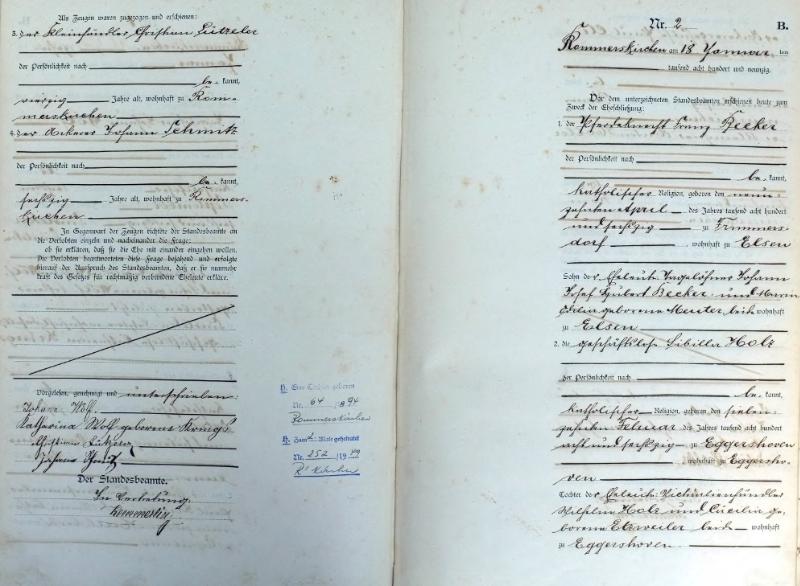 Als Zeugen waren zugezogen und erschienen:
3. der Kleinhändler Christian Lützeler
der Persönlichkeit nach
be kannt,
vierzig Jahre alt, wohnhaft zu Rom-
merskirchen
4. der Ackerer Johann Schmitz
der Persönlichkeit nach
be kannt,
sechzig Jahre alt, wohnhaft zu Rommers-
kirchen
In Gegenwart der Zeugen richtete der Standesbeamte an
die Verlobten einzeln und nacheinander die Frage:
ob sie erklären, daß sie die Ehe mit einander eingehen wollen.
Die Verlobten beantworteten diese Frage bejahend und erfolgte
hierauf der Ausspruch des Standesbeamten, daß er sie nunmehr
kraft des Gesetzes für rechtmäßig verbundene Eheleute erkläre.
Vorgelesen, genehmigt und unterschrieben:
Johann Wolf
Katharina Wolf geborene Königs
Christian Lützeler
Johann Schmitz
Der Standesbeamte.
In Vertretung
Eine Tochter geboren
Nr. 64 / 1894
Rommerskirchen
Zum 2. Male geheiratet
Nr. 252 / 1949
Nr. 2
B.
Rommerskirchen am 18 Januar
tausend acht hundert und neunzig.
Vor dem unterzeichneten Standesbeamten erschienen heute zum
Zweck der Eheschließung:
1. der Pferdeknecht Franz Becker
der Persönlichkeit nach
be kannt,
katholischer Religion, geboren den neun-
zehnten April des Jahres tausend acht hundert
und sechzig zu Frimmers-
dorf, wohnhaft zu Elsen
Sohn der Eheleute Tagelöhner Johann
Josef Hubert Becker und Maria
geborene Meuter beide wohnhaft
zu Elsen
2. die geschäftslose Sibilla Holz
der Persönlichkeit nach
be kannt,
katholischer Religion, geboren den sieben-
zehnten Februar des Jahres tausend acht hundert
acht und sechzig zu Eggershoven
wohnhaft zu Eggersho-
ven
Tochter der Eheleute Victualienhändler
Wilhelm Holz und Cäcilia ge-
borene Esweiler beide wohnhaft
zu Eggershoven